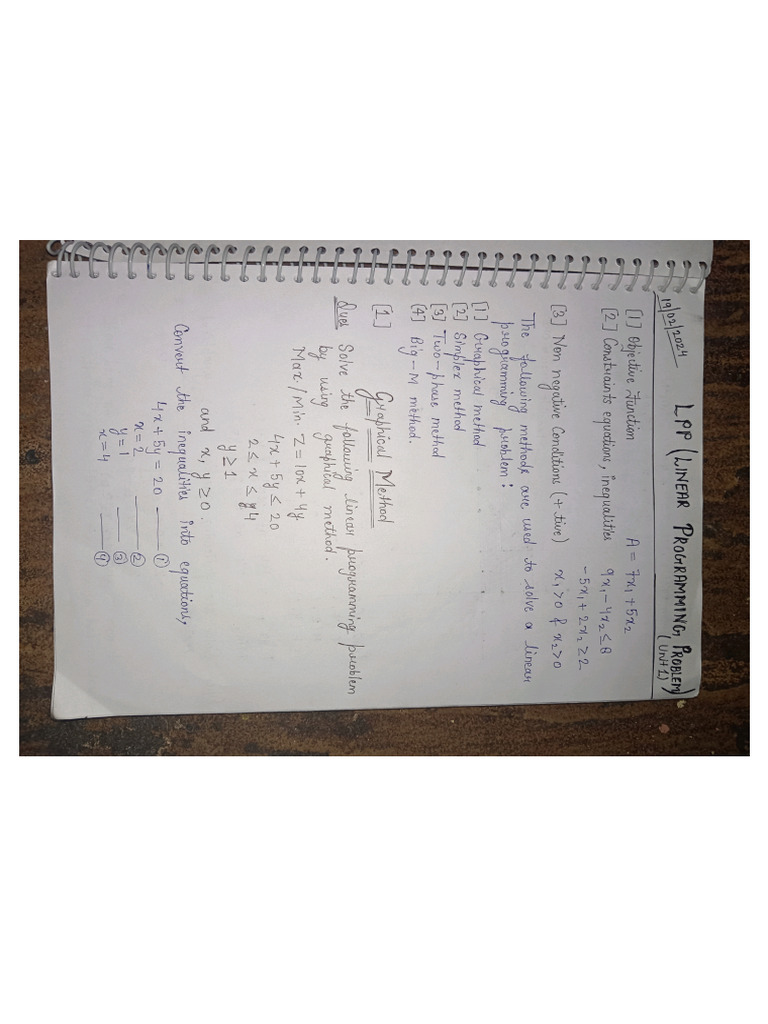 19/02/2024
LPP (LINEAR PROGRAMMING PROBLEM)
(Unit 1)
[1] Objective Function A = 7x₁ + 5x₂
[2] Constraints equations, inequalities 9x₁ - 4x₂ ≤ 8
-5x₁ + 2x₂ ≥ 2
[3] Non negative Conditions (+tive) x₁ > 0 & x₂ > 0
The following methods are used to solve a linear
programming problem:
[1] Graphical method
[2] Simplex method
[3] Two-phase method
[4] Big-M method.
[1] Graphical Method
Ques Solve the following linear programming problem
by using graphical method.
Max/Min. Z = 10x + 4y
4x + 5y ≤ 20
2 ≤ x ≤ 4
y ≥ 1
and x, y ≥ 0.
Convert the inequalities into equations,
4x + 5y = 20 — ①
x = 2 — ②
y = 1 — ③
x = 4 — ④